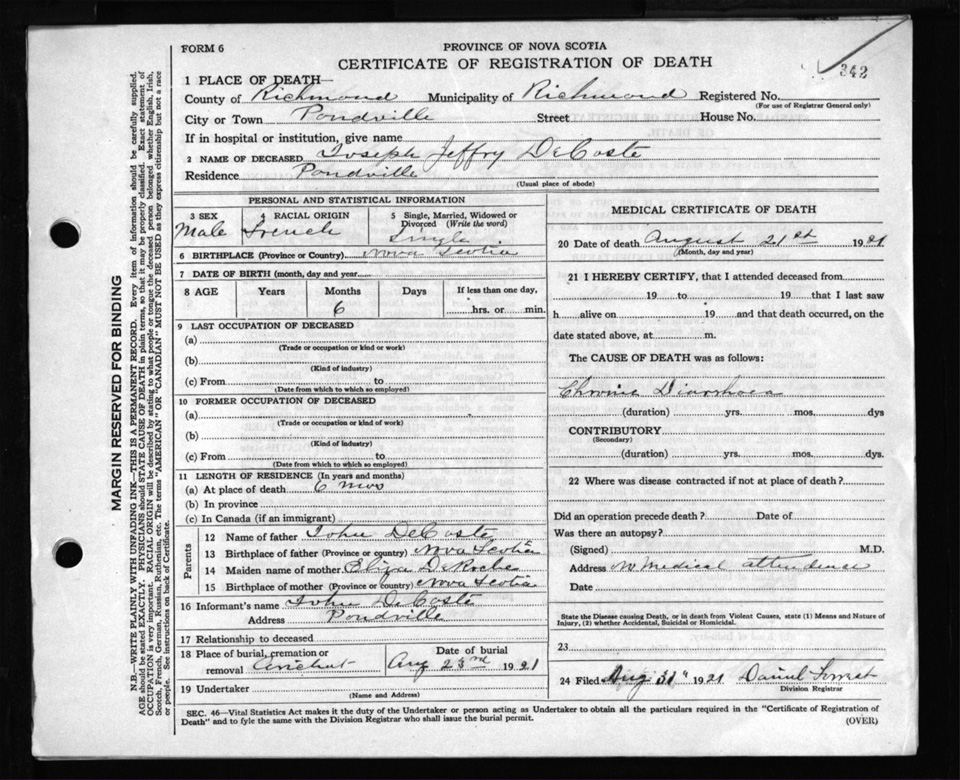 FORM 6
PROVINCE OF NOVA SCOTIA
CERTIFICATE OF REGISTRATION OF DEATH
342
1 PLACE OF DEATH—
County of Richmond Municipality of Richmond Registered No.
(For use of Registrar General only)
City or Town Pondville Street House No.
If in hospital or institution, give name
2 NAME OF DECEASED Joseph Jeffry DeCoste
Residence Pondville
(Usual place of abode)
PERSONAL AND STATISTICAL INFORMATION
3 SEX 4 RACIAL ORIGIN 5 Single, Married, Widowed or Divorced (Write the word)
Male French Single
6 BIRTHPLACE (Province or Country) Nova Scotia
7 DATE OF BIRTH (month, day and year
8 AGE Years Months Days If less than one day,
6 hrs. or min.
9 LAST OCCUPATION OF DECEASED
(a)
(Trade or occupation or kind or work)
(b)
(Kind of industry)
(c) From to
(Date from which to which so employed)
10 FORMER OCCUPATION OF DECEASED
(a)
(Trade or occupation or kind or work)
(b)
(Kind of industry)
(c) From to
(Date from which to which so employed)
11 LENGTH OF RESIDENCE (In years and months)
(a) At place of death 6 mos
(b) In province
(c) In Canada (if an immigrant)
Parents
12 Name of father John DeCoste
13 Birthplace of father (Province or country) Nova Scotia
14 Maiden name of mother Eliza DeRoche
15 Birthplace of mother (Province or country) Nova Scotia
16 Informant's name John DeCoste
Address Pondville
17 Relationship to deceased
18 Place of burial, cremation or removal Arichat
Date of burial
Aug 23rd 1921
19 Undertaker
(Name and Address)
MEDICAL CERTIFICATE OF DEATH
20 Date of death August 21st 1921
(Month, day and year)
21 I HEREBY CERTIFY, that I attended deceased from
19 to 19 that I last saw
h alive on 19 and that death occurred, on the
date stated above, at m.
The CAUSE OF DEATH was as follows:
Chronic Diarrhoea
(duration) yrs. mos. dys
CONTRIBUTORY
(Secondary)
(duration) yrs. mos. dys.
22 Where was disease contracted if not at place of death?
Did an operation precede death? Date of
Was there an autopsy?
(Signed) M.D.
Address no Medical attendence
Date
State the Disease causing Death, or in death from Violent Causes, state (1) Means and Nature of
Injury, (2) whether Accidental, Suicidal or Homicidal.
23
24 Filed Aug 31" 1921 Daniel
Division Registrar
SEC. 46—Vital Statistics Act makes it the duty of the Undertaker or person acting as Undertaker to obtain all the particulars required in the "Certificate of Registration of
Death" and to fyle the same with the Division Registrar who shall issue the burial permit.
(OVER)
MARGIN RESERVED FOR BINDING
N.B.—WRITE PLAINLY WITH UNFADING INK—THIS IS A PERMANENT RECORD. Every item of information should be carefully supplied.
AGE should be stated EXACTLY. PHYSICIANS should STATE CAUSE OF DEATH in plain terms, so that it may be properly classified. Exact statement of
OCCUPATION is very important. RACIAL ORIGIN will be described by stating to what people or tongue the deceased person belonged whether English, Irish,
Scotch, French, German, Russian, Ruthenian, etc. The terms "AMERICAN" OR "CANADIAN" MUST NOT BE USED as they express citizenship but not a race
or people. See instructions on back of Certificate.